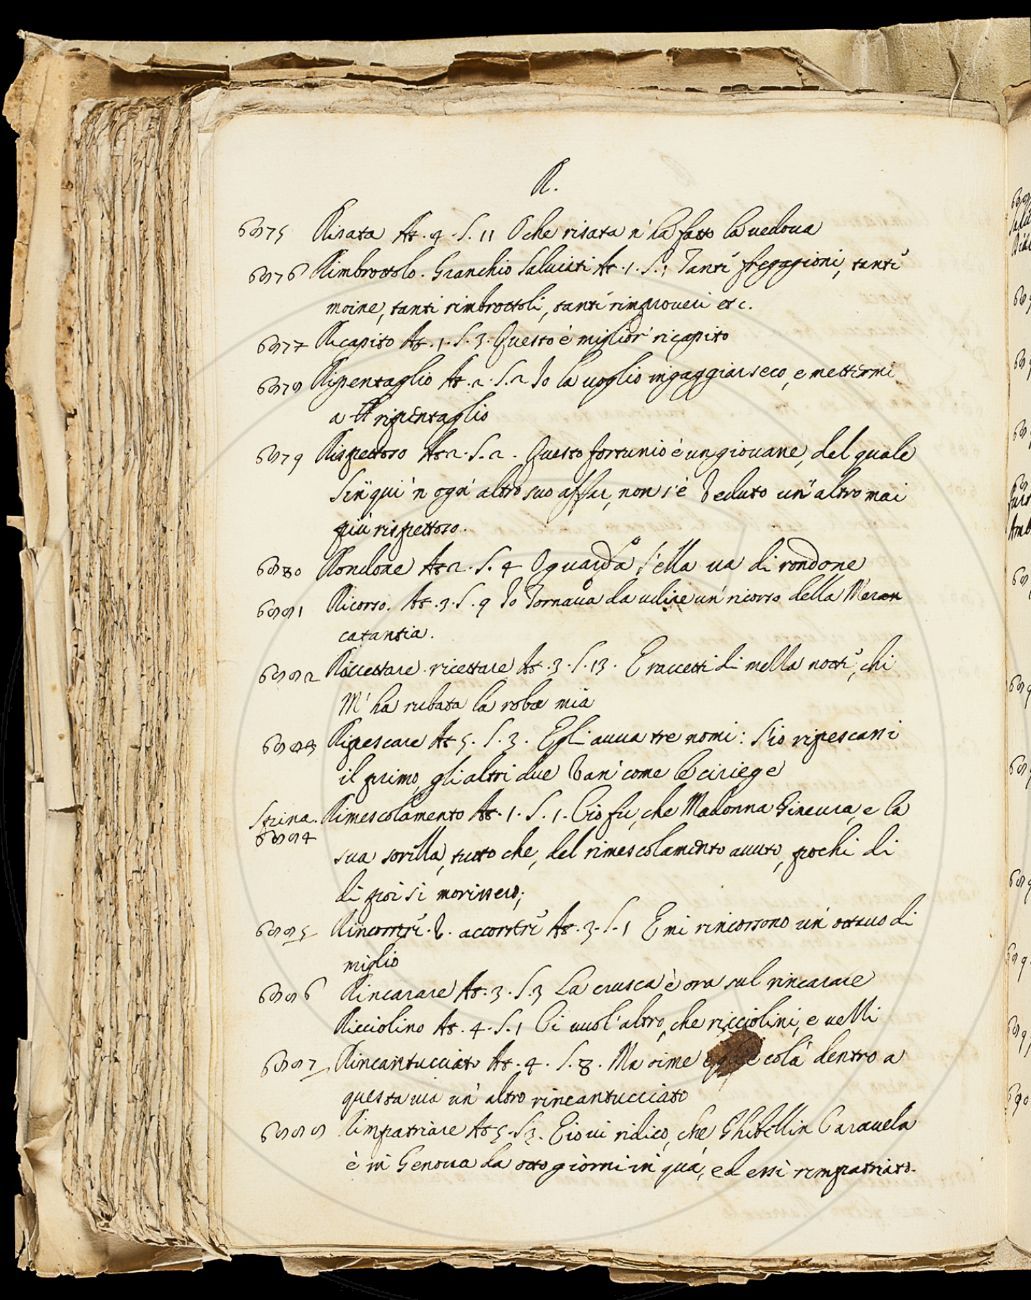 R.
6975 Risata At. 4. S. 11 O che risata n'ha fatto la vedova
6976 Rimbrottolo. Granchio Salviati At. 1. S. 1 Tanti fregagioni, tanti
moine, tanti rimbrottoli, tanti rimproveri etc.
6977 Ricapito At. 1. S. 3. Questo è miglior ricapito
6978 Ripentaglio At. 2. S. 2 Io la voglio ingaggiar seco, e mettermi
a ripentaglio
6979 Rispettoso At. 2. S. 2. Questo fortunio è un giovane, del quale
Sin qui 'n ogn' altro suo affar, non s'è veduto un altro mai
più rispettoso.
6980 Rondone At. 2. S. 4 O guarda, s'ella va di rondone
6981 Ricorso. At. 3. S. 9 Io tornava da udire un ricorso della Mer
catantia.
6982 Raccettare. ricettare At. 3. S. 13. E raccetti di nella notti, chi
M' ha rubata la roba mia
6983 Ripescare At. 5. S. 3. Egli avva tre nomi: S'io ripescassi
il primo, gli altri due van come le ciriege
Spina. Rimescolamento At. 1. S. 1. Ciò fu, che Madonna Ginevra, e la
6984
sua sorella, tutto che, del rimescolamento avuto, pochi di
di poi si morissero;
6985 At. 3. S. 1 E mi rincorsono un ottavo di
miglio
6986 Rincarare At. 3. S. 3 La crusca è ora sul rincarare
Ricciolino At. 4. S. 1 Ci vuol' altro, che ricciolini, e nelli
6987 Rincantucciato At. 4. S. 8. Ma oime colà dentro a
questa via un' altro rincantucciato
6988 Rimpatriare At. 5. S. 3. E io vi ridico, che Ghibellin Caravela
è in Genova da otto giorni in quà, ed essi rimpatriato.